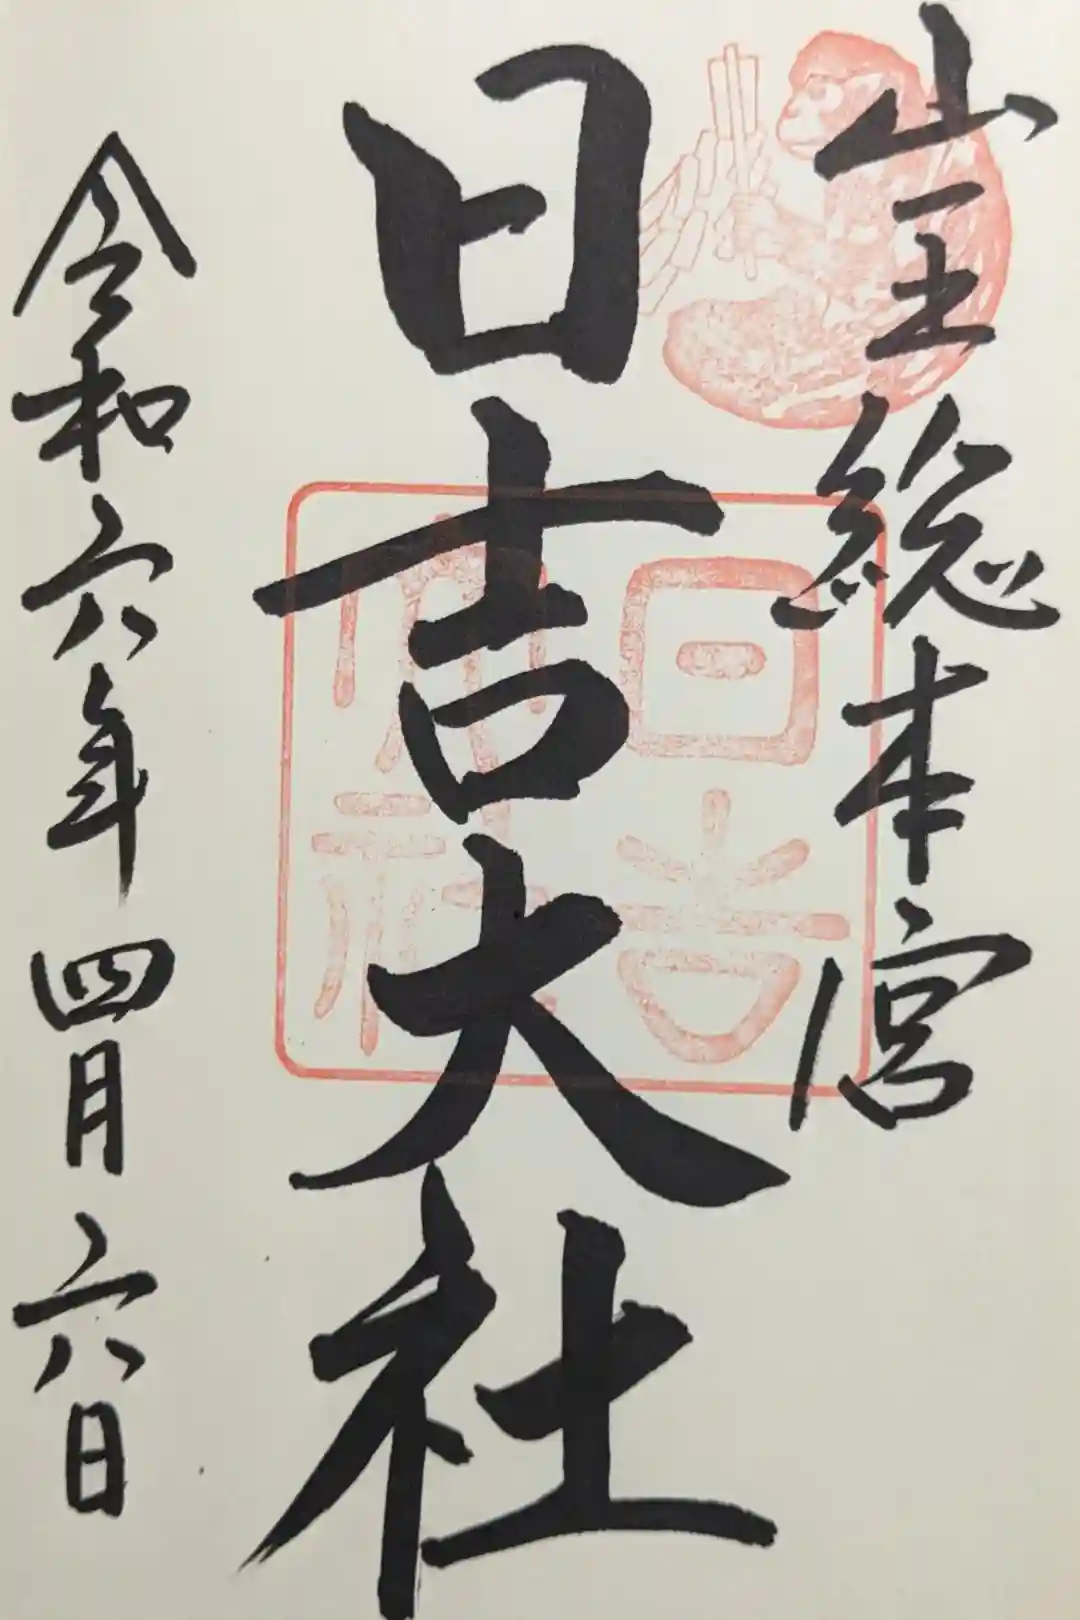 山王総本宮
日吉大社
令和六年四月六日
日吉
大社